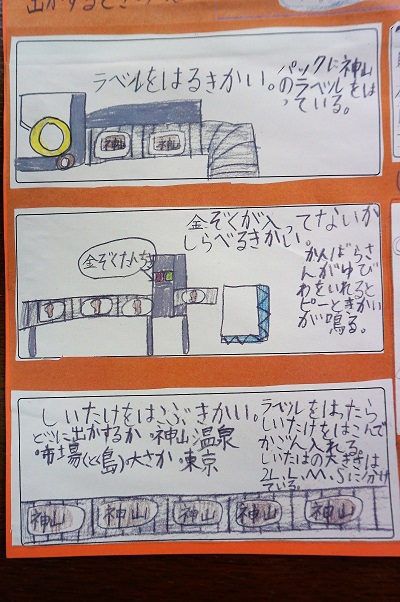 出かするとき
ラベルをはるきかい。
パックに神山
のラベルをは
っている。
神山
神山
金ぞくが入ってないか
しらべるきかい。
金ぞくたんち
かんばらさ
んがゆび
わをいれると
ピーときかい
が鳴る。
しいたけをはこぶきかい。
どこに出かするか・神山温泉
・市場(と島)大さか・東京
ラベルをはったら
しいたけをはこんで
かごん入れる。
しいたはの大きさは
2L、L、M、Sに分け
ている。
神山
神山
神山
神山
神山